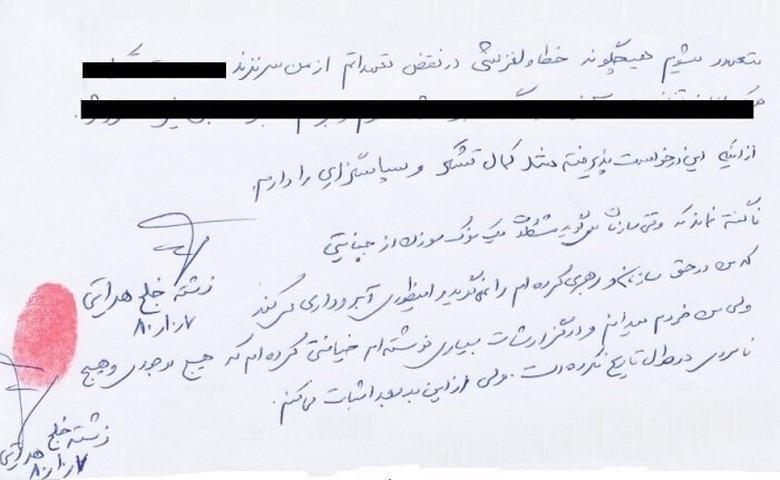 متعهد میشوم هیچگونه خطا و لغزشی در نقض تعهداتم از من سرنزند
از اینکه این درخواست پذیرفته شد کمال تشکر و سپاسگزاری را دارم.
ناگفته نماند که وقتی سازمان میگوید مشکلات یک سوزن از خیانتی
که من در حق سازمان و رهبری کرده ام را نمیگوید و اینطوری آبروداری می کند
ولی من خودم میدانم و در گزارشات بسیاری نوشته ام خیانتی کرده ام که هیچ موجودی و هیچ
نامردی در طول تاریخ نکرده است. ولی از این به بعد اثبات می کنم.
فرشته خلج هدایتی
۸۰/۱۰/۷
فرشته خلج هدایتی
۸۰/۱۰/۷